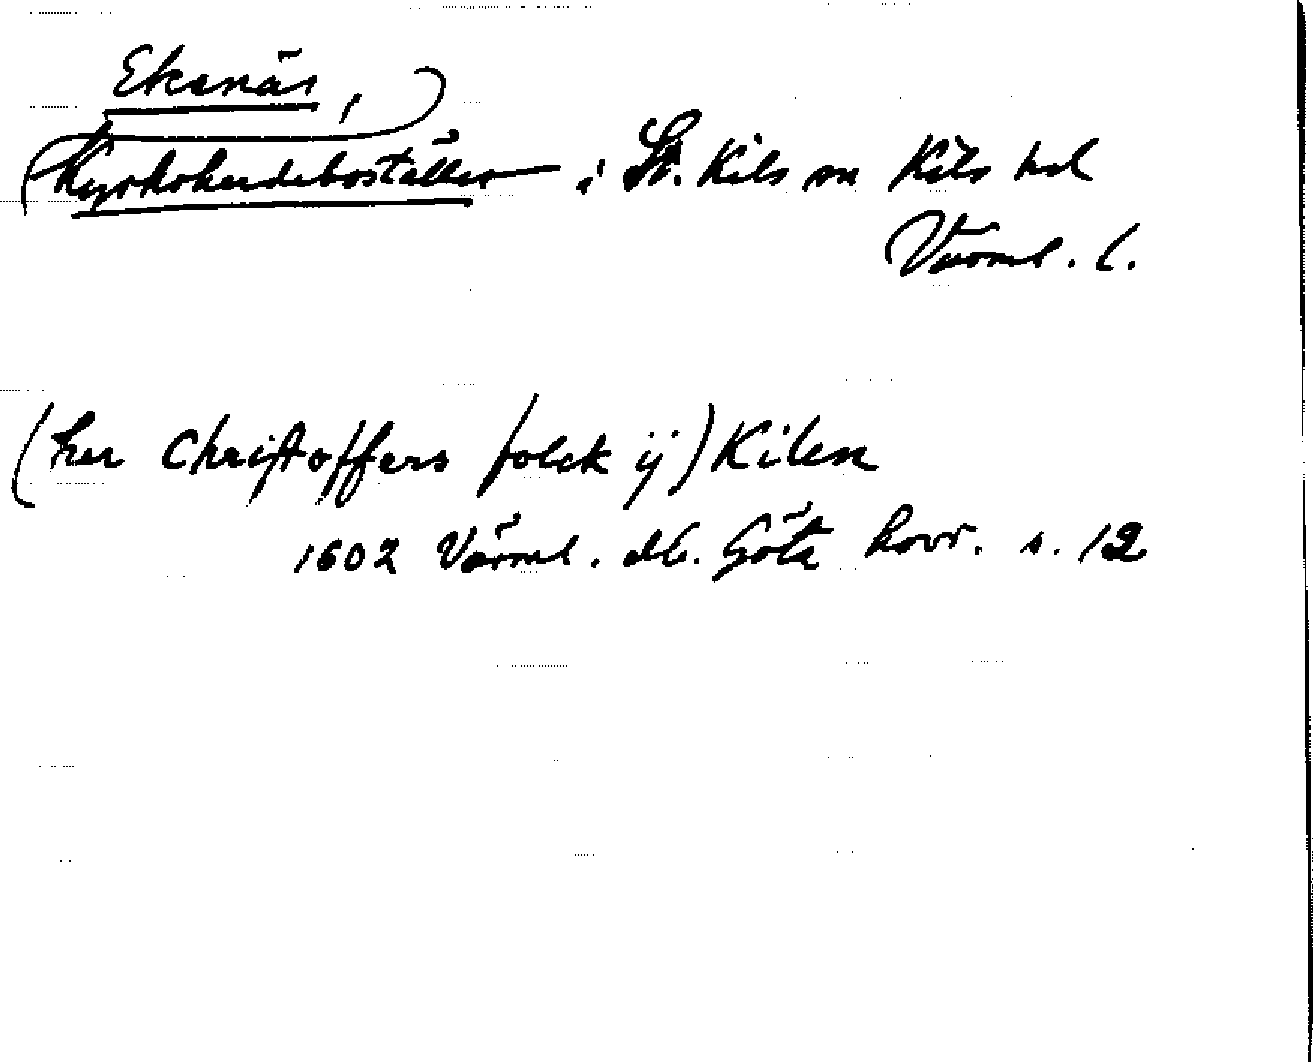 Ekenäs,
Kyrkoherdeboställe i St. Kils sn Kils hd
Värml. l.
(her Christoffers folck ij) Kilen
1602 Värml. db. Göta hovr. s. 12